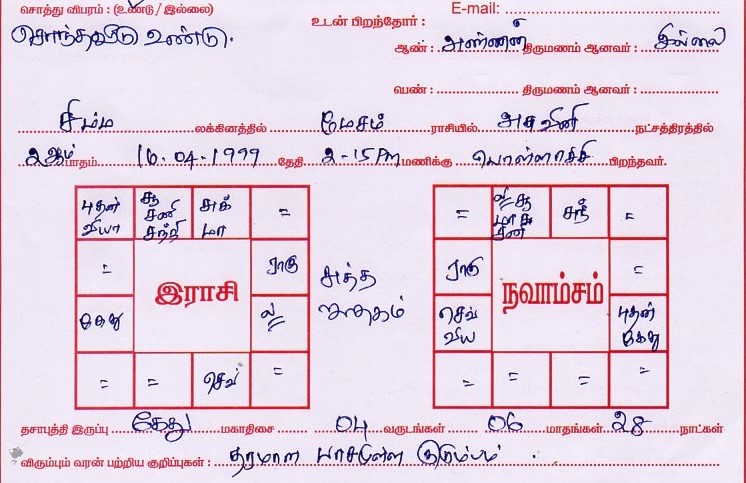 சொத்து விபரம் : (உண்டு / இல்லை)
E-mail:
சொந்தவீடு உண்டு.
உடன் பிறந்தோர் :
ஆண் : அண்ணன் திருமணம் ஆனவர் : இல்லை
பெண் : திருமணம் ஆனவர் :
சிம்ம லக்கினத்தில் மேசம் ராசியில் அசுவினி நட்சத்திரத்தில்
2ஆம் பாதம் 16.04.1999 தேதி 2-15 PM மணிக்கு பொள்ளாச்சி பிறந்தவர்.
புதன் வியா
சூ சனி சந்தி
சுக் மா
=
=
ராகு
கேது
ல
=
=
செவ்
=
இராசி
சுத்த ஜாதகம்
=
சுரீ
=
ராகு
=
செவ் விய
புதன் கேது
=
=
=
=
நவாம்சம்
தசாபுத்தி இருப்பு கேது மகாதிசை 04 வருடங்கள் 06 மாதங்கள் 28 நாட்கள்
விரும்பும் வரன் பற்றிய குறிப்புகள் : தரமான பாசமுள்ள குடும்பம் .